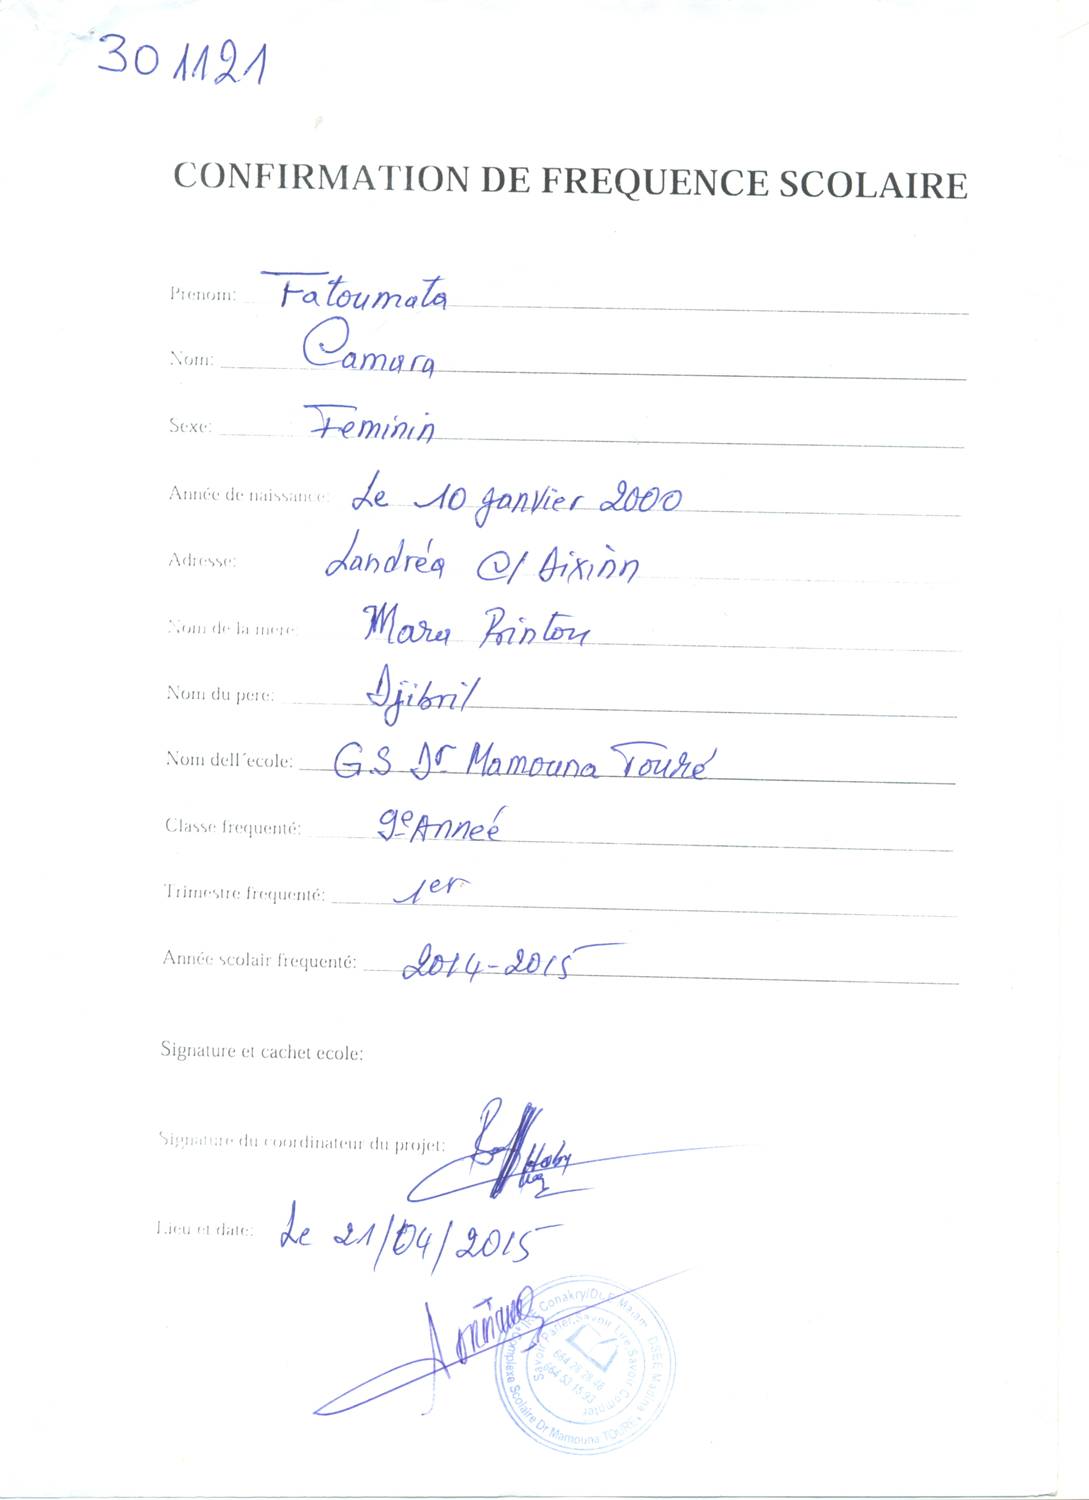 301121
CONFIRMATION DE FREQUENCE SCOLAIRE
Prenom: Fatoumata
Nom: Camara
Sexe: Feminin
Année de naissance: Le 10 janvier 2000
Adresse: Landréa C/ Dixinn
Nom de la mere: Mara Bintou
Nom du pere: Djibril
Nom dell´ecole: G.S Dr Mamouna Touré
Classe frequenté: 9e Anneé
Trimestre frequenté: 1er
Année scolair frequenté: 2014-2015
Signature et cachet ecole:
Signature du coordinateur du projet:
Lieu et date: Le 21/04/2015
Complexe Scolaire Dr Mamouna TOURE * IRE Conakry/DCE Matam DSEE Madina *
Savoir Parler, Savoir Lire, Savoir Compter
664 28 28 46
664 53 15 93